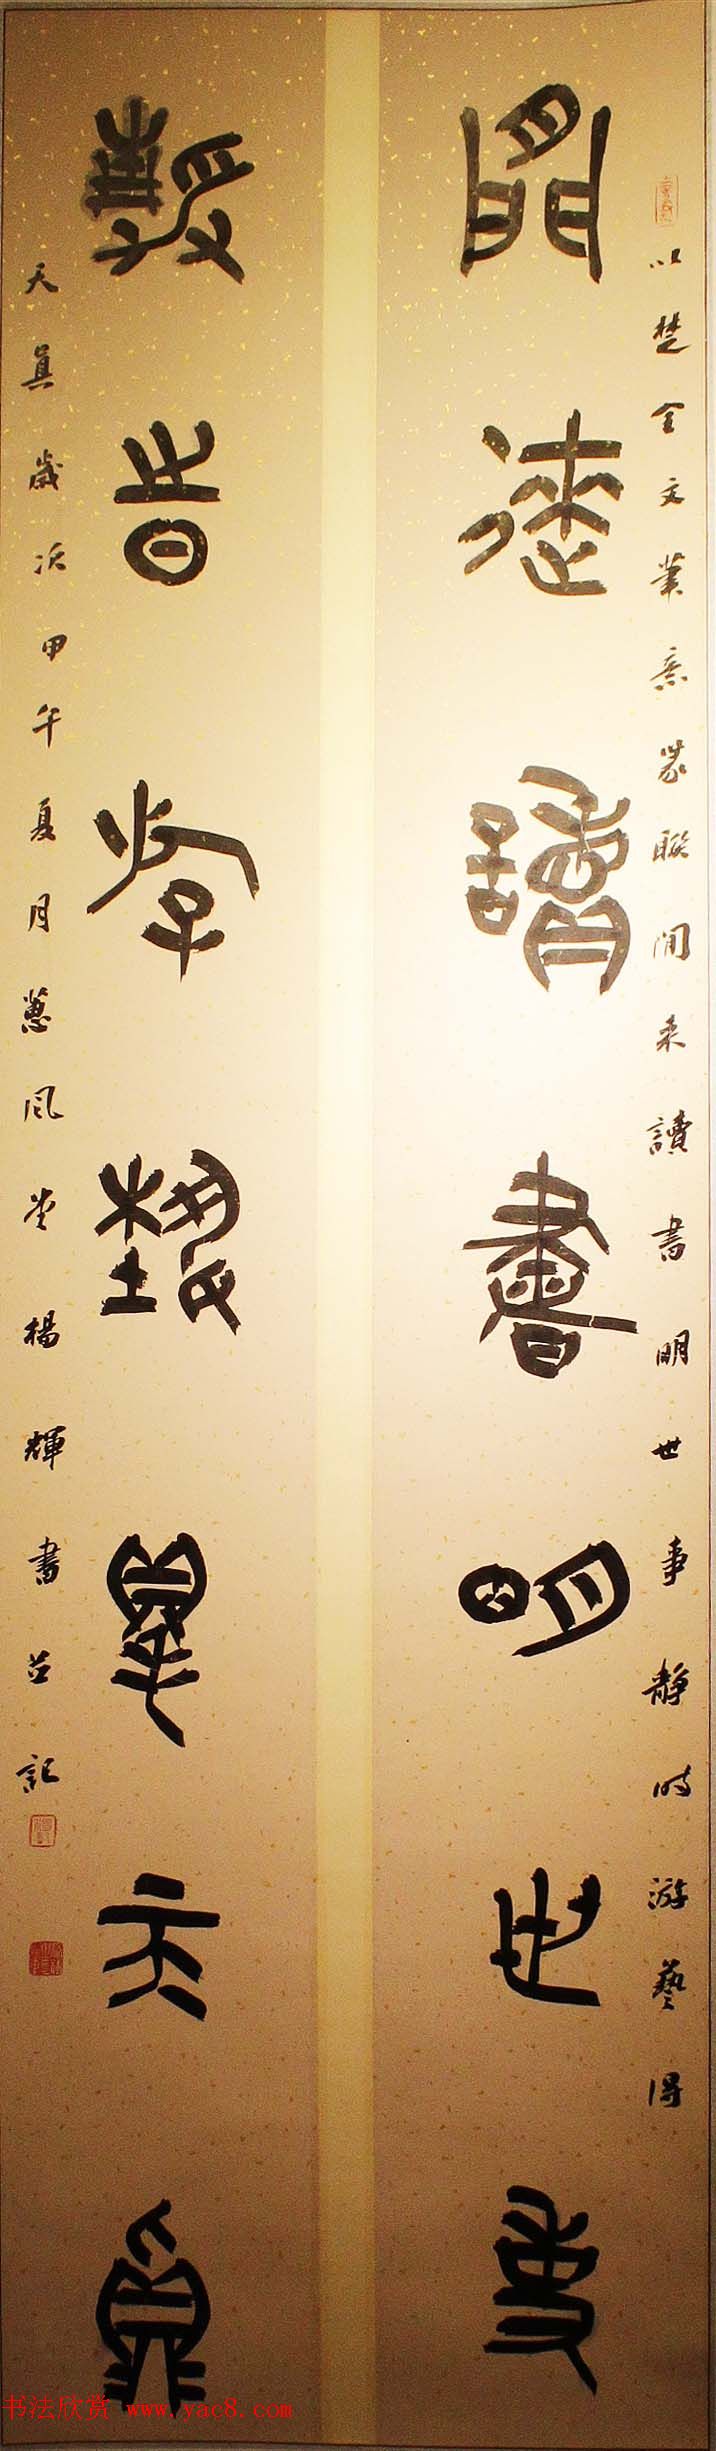 以楚金文筆意篆聯閒來讀書明世事靜時游藝得
閒來讀書明世事
靜時游藝得天真
天真歲次甲午夏月蕙風堂楊輝書並記
书法欣赏 www.yac8.com